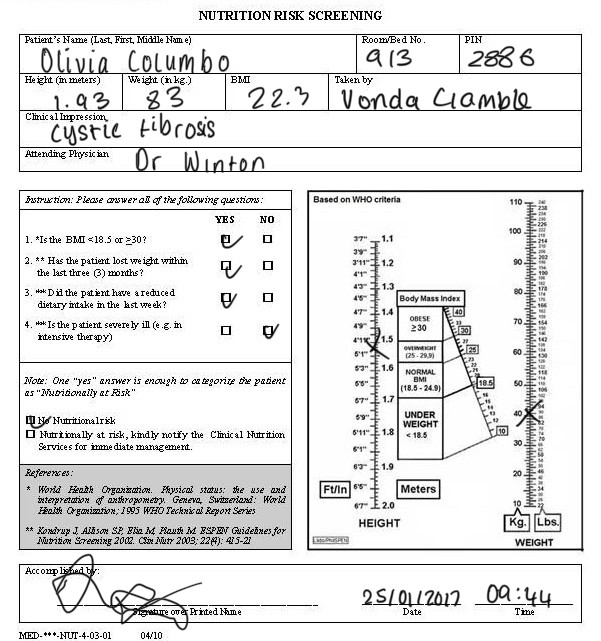 NUTRITION RISK SCREENING
Patient's Name (Last, First, Middle Name) Room/Bed No. PIN
Olivia Columbo 913 2886
Height (in meters) Weight (in kg.) BMI Taken by
1.93 83 22.3 Vonda Clamble
Clinical Impression
Cystic Fibrosis
Attending Physician Dr Winton
Instruction: Please answer all of the following questions:
YES NO
1. *Is the BMI <18.5 or ≥30?
2. ** Has the patient lost weight within
the last three (3) months?
3. ** Did the patient have a reduced
dietary intake in the last week?
4. ** Is the patient severely ill (e.g. in
intensive therapy)
Note: One "yes" answer is enough to categorize the patient
as "Nutritionally at Risk"
No Nutritional risk
Nutritionally at risk, kindly notify the Clinical Nutrition
Services for immediate management.
References:
* World Health Organization. Physical status: the use and
interpretation of anthropometry. Geneva, Switzerland: World
Health Organization; 1995 WHO Technical Report Series
** Kondrup J, Allison SP, Elia M, Plauth M. ESPEN Guidelines for
Nutrition Screening 2002. Clin Nutr 2003; 22(4): 415-21
Based on WHO criteria
3'7" 1.1
3'9"
3'11" 1.2
4'1"
4'3" 1.3
4'5"
4'7" 1.4
4'9"
4'11" 1.5
5'1"
5'3" 1.6
5'5"
5'7" 1.7
5'9"
5'11" 1.8
6'1"
6'3" 1.9
6'5"
6'7" 2.0
Ft/In Meters
HEIGHT
Body Mass Index
OBESE
≥30
OVERWEIGHT
(25 - 29,9)
NORMAL
BMI
(18.5 - 24.9)
UNDER
WEIGHT
< 18.5
40
30
25
18.5
10
110
100
90
80
70
60
50
40
30
20
10
Kg. Lbs.
WEIGHT
Accomplished by:
25/01/2017 09:44
Signature over Printed Name Date Time
MED-***-NUT-4-03-01 04/10